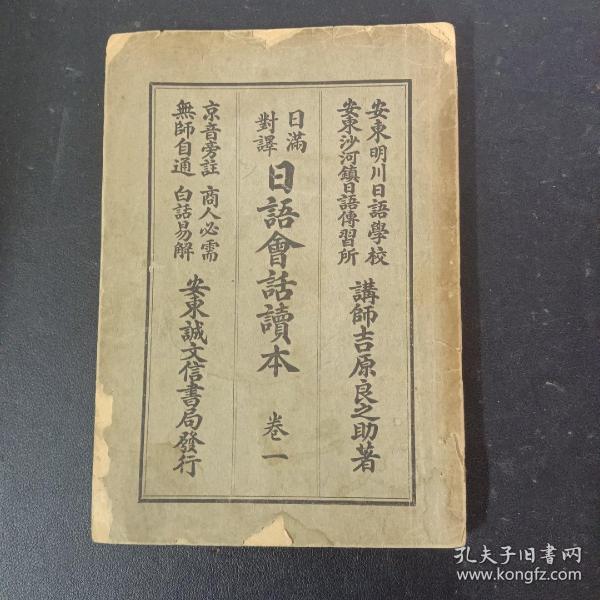 安東明川日語學校
安東沙河鎮日語傳習所
講師吉原良之助著
日滿
對譯
日語會話讀本 卷一
京音旁註 商人必需
無師自通 白話易解
安東誠文信書局發行
孔夫子旧书网
www.kongfz.com